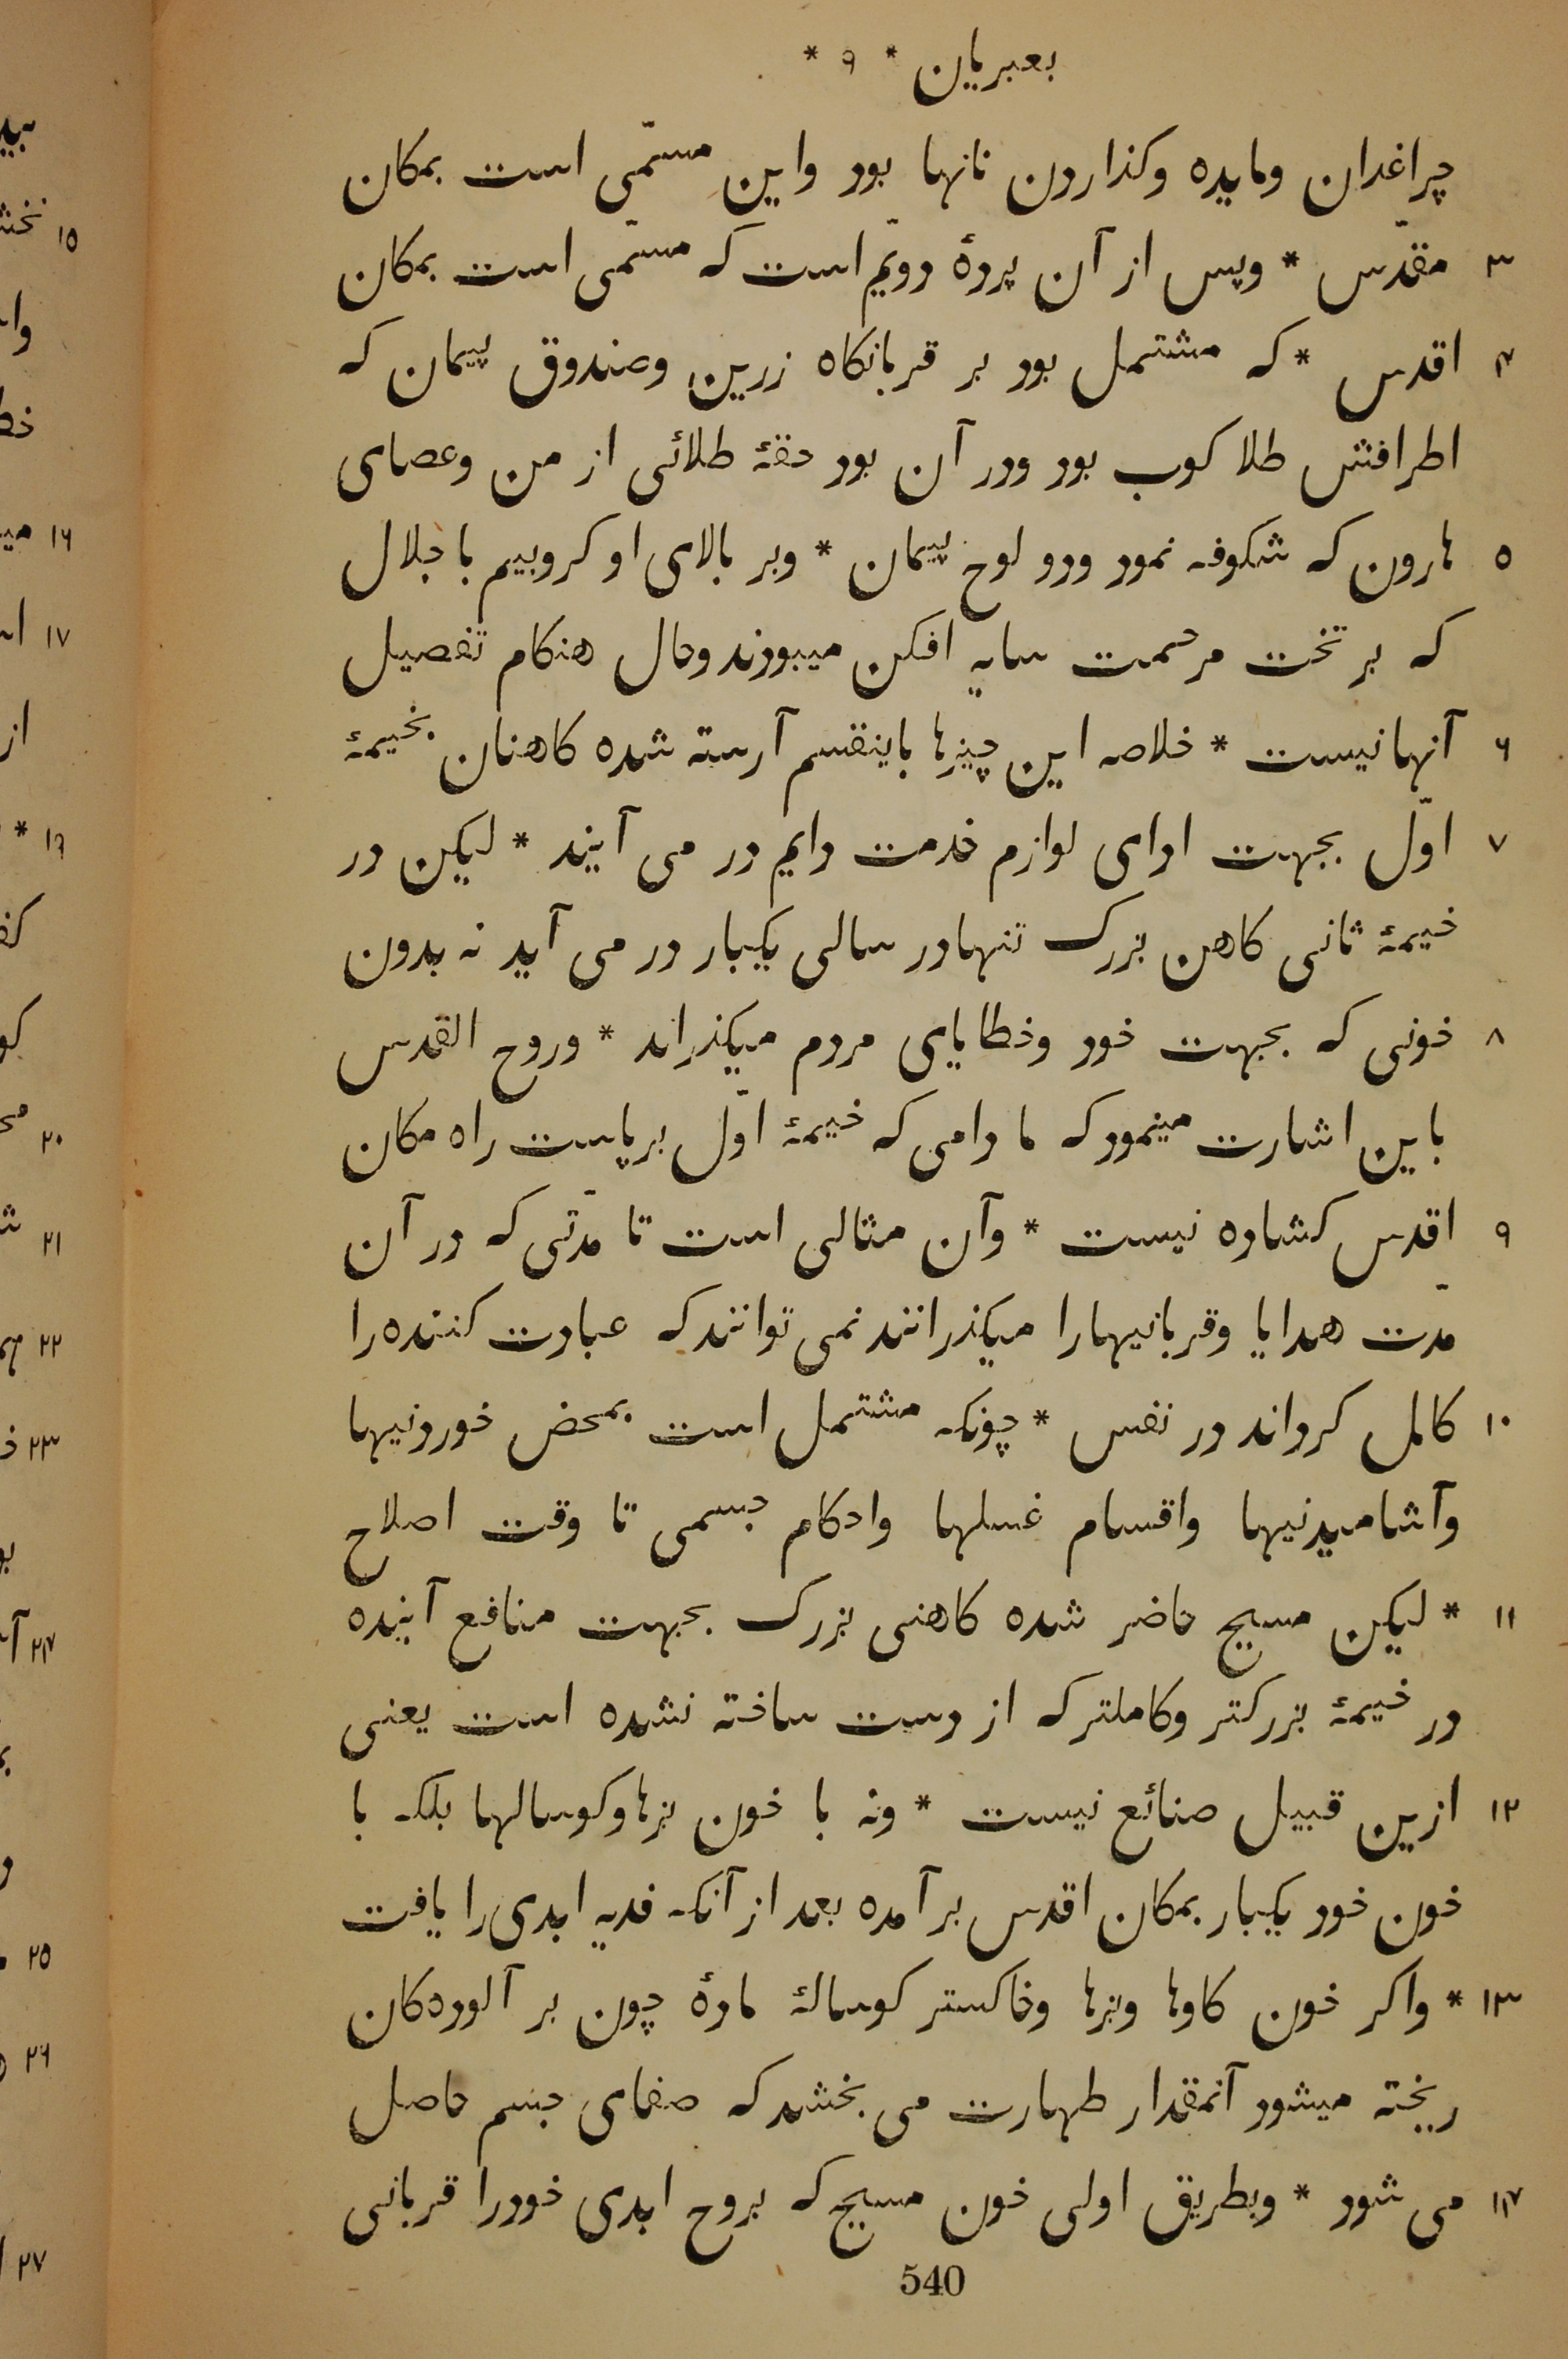 بعبریان * ۹ *
چراغدان ومایده وکذاردن نانها بود واین مسمّی است بمکان
۳ مقدّس * وپس از آن پردهٔ دویّم است که مسمّی است بمکان
۴ اقدس * که مشتمل بود بر قربانکاه زرین وصندوق پیمان که
اطرافش طلا کوب بود ودر آن بود حقهٔ طلائی از من وعصای
۵ هارون که شکوفه نمود ودو لوح پیمان * وبر بالای او کروبیم با جلال
که بر تخت مرحمت سایه افکن میبودند وحال هنکام تفصیل
۶ آنها نیست * خلاصه این چیزها باینقسم آرسته شده کاهنان بخیمهٔ
۷ اوّل بجهت ادای لوازم خدمت دایم در می آیند * لیکن در
خیمهٔ ثانی کاهن بزرک تنها در سالی یکبار در می آید نه بدون
۸ خونی که بجهت خود وخطایای مردم میکذراند * وروح القدس
باین اشارت مینمود که ما دامی که خیمهٔ اوّل برپاست راه مکان
۹ اقدس کشاده نیست * وآن مثالی است تا مدّتی که در آن
مدّت هدایا وقربانیها را میکذرانند نمی توانند که عبادت کننده را
۱۰ کامل کرداند در نفس * چونکه مشتمل است بمحض خوردنیها
وآشامیدنیها واقسام غسلها واحکام جسمی تا وقت اصلاح
۱۱ * لیکن مسیح حاضر شده کاهنی بزرک بجهت منافع آینده
در خیمهٔ بزرکتر وکاملتر که از دست ساخته نشده است یعنی
۱۲ ازین قبیل صنائع نیست * ونه با خون بزها وکوسالها بلکه با
خون خود یکبار بمکان اقدس بر آمده بعد از آنکه فدیه ابدی را یافت
۱۳ * واکر خون کاوها وبزها وخاکستر کوسالهٔ مادهٔ چون بر آلودهکان
ریخته میشود آنمقدار طهارت می بخشد که صفای جسم حاصل
۱۴ می شود * وبطریق اولی خون مسیح که بروح ابدی خود را قربانی
540
۱۵
۱۶
۱۷
۱۹ *
۲۰
۲۱
۲۲
۲۳
۲۴
۲۵
۲۶
۲۷